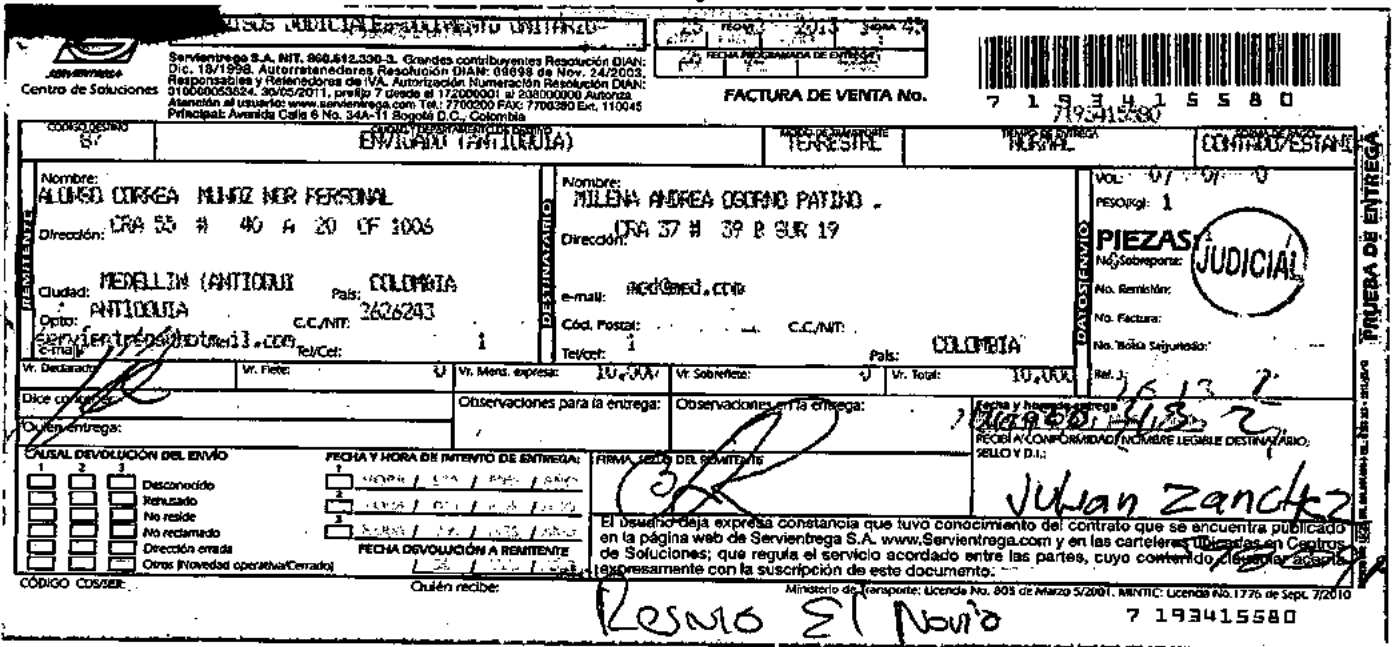 JUDICIALES DOCUMENTO UNITARIO
FECHA HORA
2013
FECHA PROGRAMADA DE ENTREGA
SERVIENTREGA
Centro de Soluciones
Servientrega S.A. NIT. 860.512.330-3. Grandes contribuyentes Resolución DIAN:
Dic. 18/1998. Autorretenedores Resolución DIAN: 09698 de Nov. 24/2003,
Responsables y Retenedores de IVA. Autorización Numeración Resolución DIAN:
310000053624. 30/05/2011, prefijo 7 desde el 172000001 al 208000000 Autoriza
Atención al usuario: www.servientrega.com Tel.: 7700200 FAX: 7700380 Ext. 110045
Principal: Avenida Calle 6 No. 34A-11 Bogotá D.C., Colombia
FACTURA DE VENTA No.
7 1 9 3 4 1 5 5 8 0
7193415580
CODIGO DESTINO
87
CIUDAD Y DEPARTAMENTO DE DESTINO
ENVIGADO (ANTIOQUIA)
MODO DE TRANSPORTE
TERRESTRE
TIEMPO DE ENTREGA
NORMAL
FORMA DE PAGO
CONTADO/ESTAND
REMITENTE
Nombre:
ALONSO CORREA MUÑOZ NOR PERSONAL
Dirección: CRA 55 # 40 A 20 OF 1006
Ciudad: MEDELLIN (ANTIOQUI País: COLOMBIA
Dpto: ANTIOQUIA C.C./NIT: 3626243
e-mail Tel/Cel: 1
DESTINATARIO
Nombre:
MILENA ANDREA OSORNO PATIÑO .
Dirección: CRA 37 # 39 B SUR 19
e-mail: med@med.com
Cód. Postal: C.C./NIT:
Tel/cel: 1 País: COLOMBIA
DATOS ENVIO
VOL: 0/ 0/ 0
PESO(Kg): 1
PIEZAS:
JUDICIAL
No. Sobreporte:
No. Remisión:
No. Factura:
No. Bolsa Seguridad:
Ref. 1:
PRUEBA DE ENTREGA
Vr. Declarado: Vr. Flete: 0 Vr. Mens. expresa: 10,000 Vr. Sobreflete: 0 Vr. Total: 10,000
Dice contener:
Quién entrega:
Observaciones para la entrega:
Observaciones en la entrega:
Fecha y hora de entrega
RECIBI A CONFORMIDAD (NOMBRE LEGIBLE DESTINATARIO,
SELLO Y D.I.:
Julian Zanchez
CAUSAL DEVOLUCIÓN DEL ENVÍO
1 2 3
Desconocido
Rehusado
No reside
No reclamado
Dirección errada
Otros (Novedad operativa/Cerrado)
FECHA Y HORA DE INTENTO DE ENTREGA:
1
2
3
FECHA DEVOLUCIÓN A REMITENTE
FIRMA, SELLO DEL REMITENTE
El usuario deja expresa constancia que tuvo conocimiento del contrato que se encuentra publicado
en la página web de Servientrega S.A. www.Servientrega.com y en las carteleras ubicadas en Centros
de Soluciones; que regula el servicio acordado entre las partes, cuyo contenido clausular acepta
expresamente con la suscripción de este documento.
CÓDIGO CDS/SER:
Quién recibe:
Ministerio de Transporte: Licencia No. 805 de Marzo 5/2001. MINTIC: Licencia No.1776 de Sept. 7/2010
El Novio
7 193415580